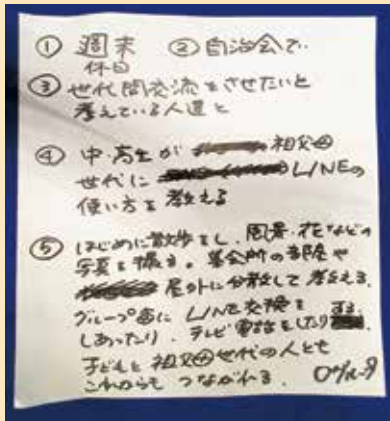 ① 週末 ② 自治会で
休日
③ 世代間交流をさせたいと
考えている人達と
④ 中・高生が 祖父母
世代に LINEの
使い方を教える
⑤ はじめに散歩をし、風景・花などの
写真を撮る。集会所の部屋や
屋外に分散して教える。
グループ毎に LINE交換を
しあったり、テレビ電話をしたりする。
子どもと祖父母世代の人とも
これからもつながれる。